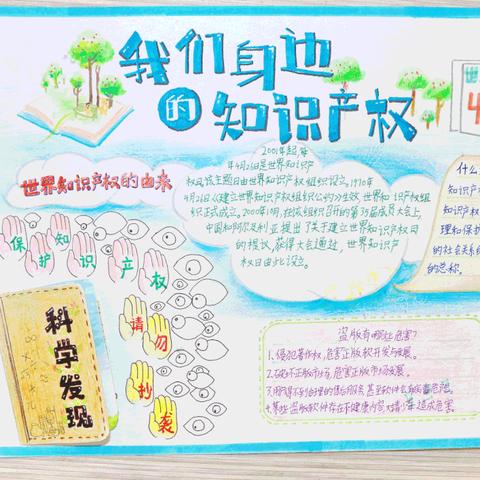 我们身边
的知识产权
世
4
世界知识产权的由来
2001年起,每
年4月26日是世界知识产
权日,该主题日由世界知识产权组织设立。1970年
4月26日《建立世界知识产权组织公约》生效,世界知识产权组
织正式成立。2000年10月,在该组织召开的第35届成员大会上,
中国和阿尔及利亚提出了关于建立世界知识产权日
的提议,获得大会通过,世界知识产
权日由此设立。
什么
知识产
知识产权
理和保护
的社会关系
的总称。
保护知识产权
请勿抄袭
科学发现
盗版有哪些危害?
1.侵犯著作权,危害正版软开发与发展。
2.破坏正版市场,危害正版市场发展。
3.用户得不到合理的售后服务,甚至软件会有病毒危
4.某些盗版软件存在不健康内容,对青少年造成危害。